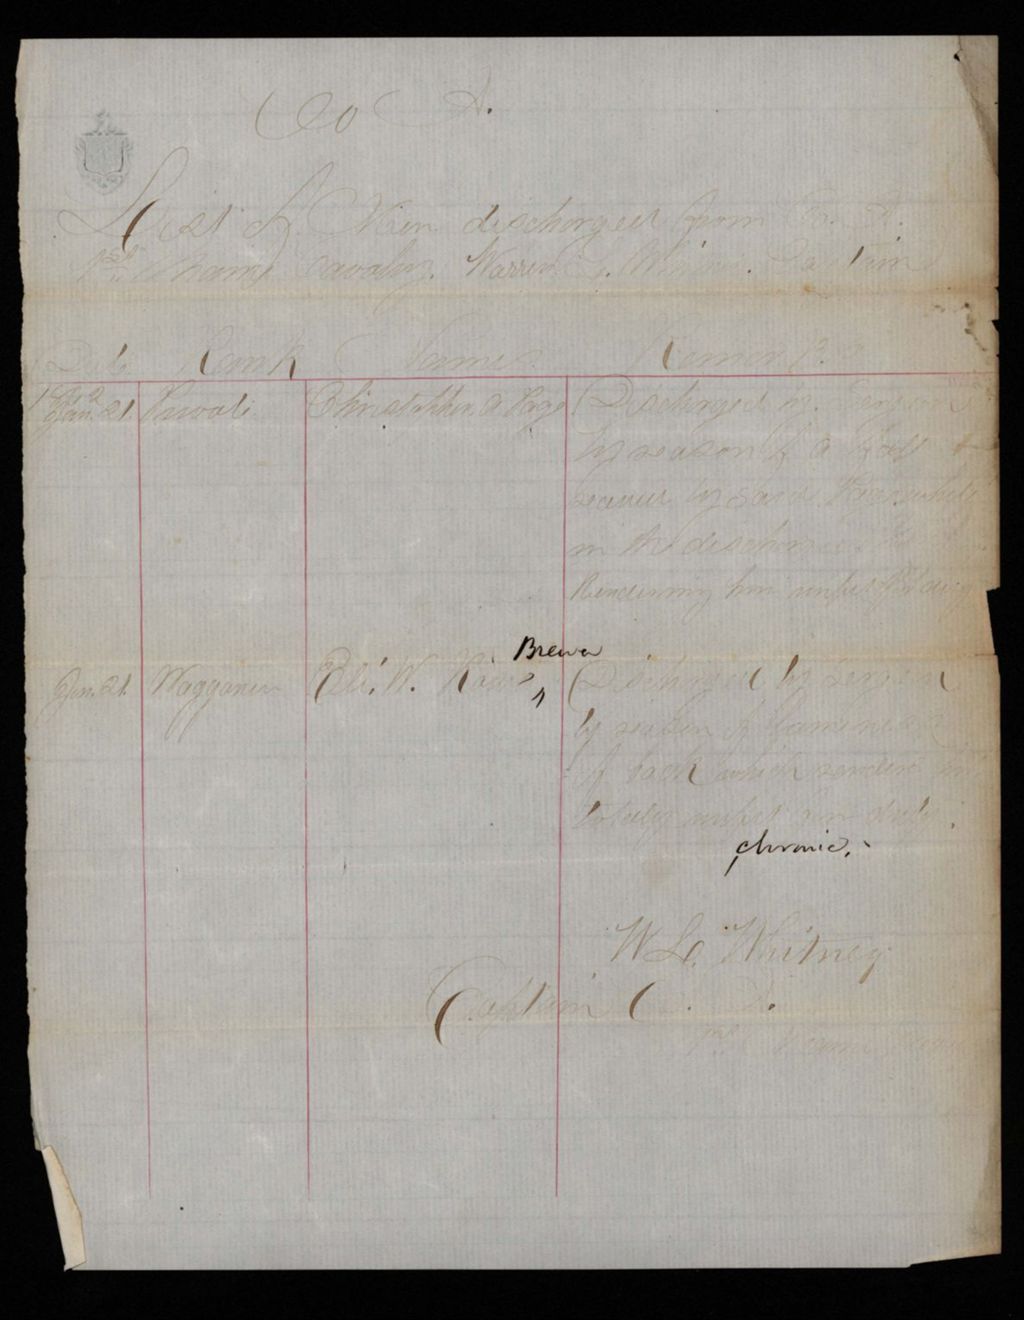 Co A.
List of Men discharged from Co. A.
1st Maine Cavalry. Warren L. Whitney. Captain
Date Rank Names Remarks
1862
Jan. 21. Private Christopher A Page Discharged by
by reason of a
received by said Page while
in the discharge
Rendering him unfit for duty
Brewer
Jan. 21. Waggoner Eli. W. Discharged by
by reason of lameness
of back which renders him
totally unfit for duty.
chronic.
W L. Whitney
Captain Co. A.
1st Maine